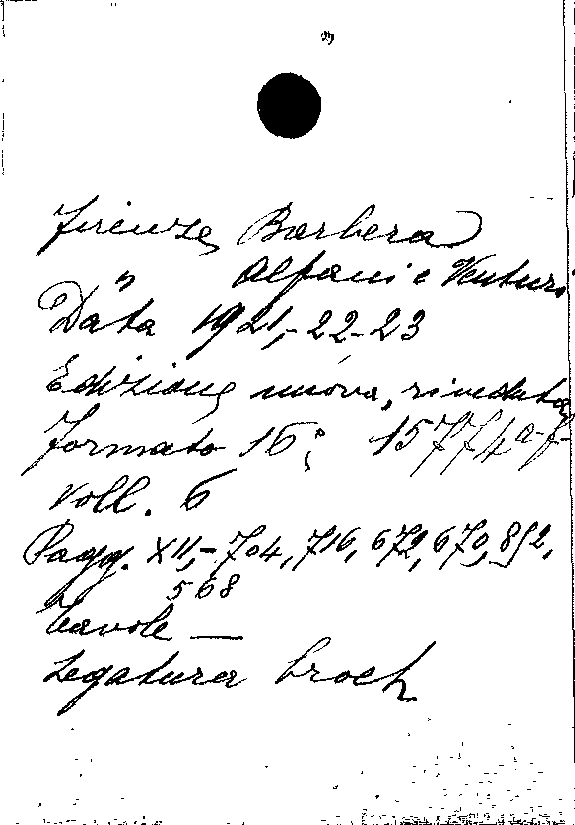 Firenze, Barbera
" Alfani e Venturi
Data 1921,-22-23
Edizione nuova, riveduta
Formato 16°; 15774 a-f
Voll. 6
Pagg. XII,-704, 716, 672, 670, 852,
568
Tavole —
Legatura broch